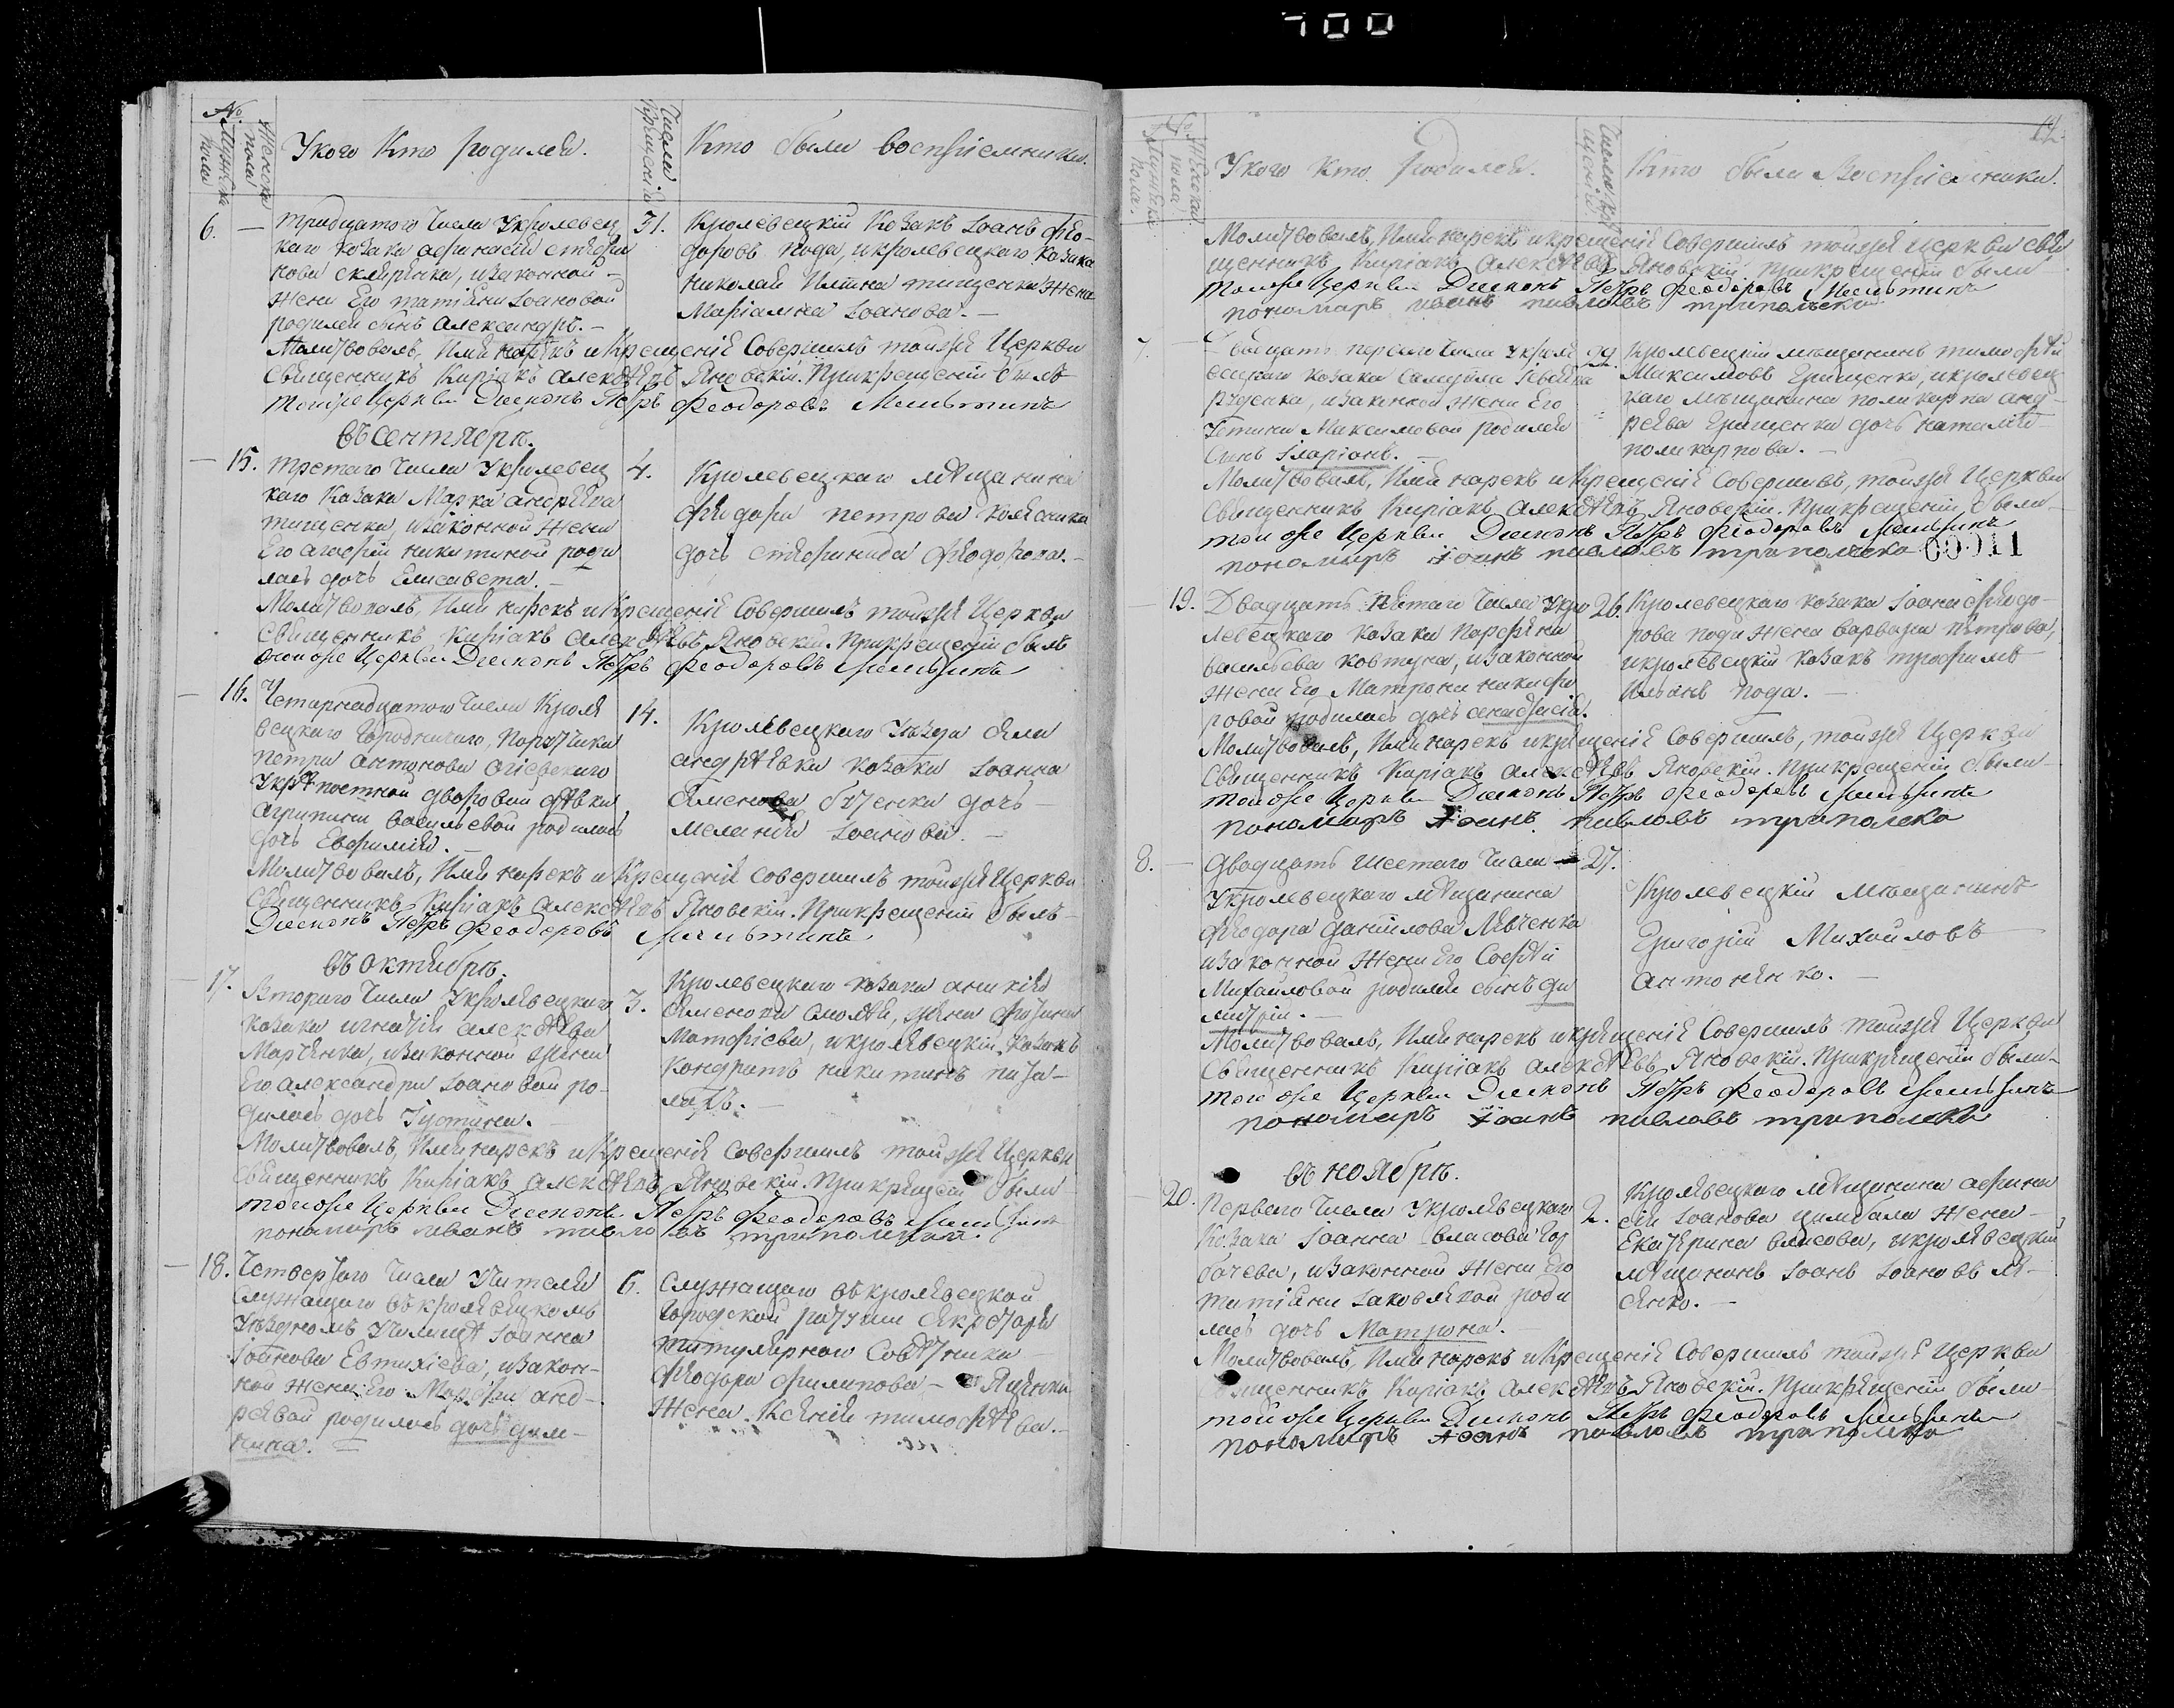 700
№
Мужска пола
Женска пола
У кого кто родился.
Числа крещенія
Кто были восприемники.
6. — тридцатого числа Укролевец
каго козака афанасія стефа
нова скляренка, изаконной
жены Его татіяны Іоановой
родился сынъ Александръ. —
31. Кролевецкій Козакъ Іоанъ Фео-
доровъ пода, икролевецкаго козака
николая тищенка жена
Маріамна Іоанова. —
Молитвовалъ, Имя нарекъ иКрещеніе Совершилъ тойжя Церкви
Священникъ Киріакъ Алексѣевъ Яновскій. Прикрещеніи былъ
тойже Церкви Діяконъ Петръ Феодоровъ
въ сентябрѣ.
— 15. третаго числа Укролевец
каго Козака Марка андреева
тищенка, изаконной жены
Его агафіи никитиной роди
лась дочь Елисавета. —
4. Кролевецкаго мѣщанина
Феодора петрова колесника
дочь стефанида Феодорова. —
Молитвовалъ, Имя нарекъ иКрещеніе Совершилъ тойжя Церкви
Священникъ Киріакъ Алексѣевъ Яновскій. Прикрещеніи былъ
тойже Церкви Діяконъ Петръ Феодоровъ
— 16. Четырнадцатого числа Кроле
вецкаго Городничаго, Порутчика
петра антонова
Укрѣпостной дворовой дѣвки
агрипины васильевой родилась
дочь Евфимія. —
14. Кролевецкаго Уѣзда села
андрѣевки козака Іоанна
Семенова дочь
меланія Іоанова. —
Молитвовалъ, Имя нарекъ иКрещеніе совершилъ тойжя Церкви
Священникъ Киріакъ Алексѣевъ Яновскій. Прикрещеніи былъ
Діяконъ Петръ Феодоровъ
въ октябрѣ.
— 17. Втораго числа Укролевецкаго
козака игнатія алексѣева
Марченка, изаконной жены
Его александры Іоановой ро-
дилась дочь Іустина. —
3. Кролевецкаго козака
Семенова жена
Матфіева, икролевецкій козакъ
Кондратъ никитинъ
Молитвовалъ, Имя нарекъ иКрещеніе Совершилъ тойжя Церкви
Священникъ Киріакъ Алексѣевъ Яновскій. Прикрещеніи были
тойже Церкви Діяконъ Петръ Феодоровъ
пономаръ иванъ павловъ
— 18. Четвертаго числа Учителя
Служащаго въкролевецкомъ
Уѣздномъ Училищѣ Іоанна
Іоанова Евтихіева, изакон-
ной жены Его Марфы анд-
реевой родилась дочь дом-
никия.
6. Служащаго въкролевецкой
городской ратуши Секретаря
титулярнаго Совѣтника
Феодора филипова — Яценка
жена Ксенія тимофѣева. —
12.
№
Женска пола
Мужска пола
У кого кто родился.
Числа крещенія
Кто были Восприемники.
Молитвовалъ, Имя нарекъ икрещеніе Совершилъ тойжя церкви свя
щенникъ Киріакъ Алексѣевъ Яновскій. Прикрещеніи были
тойже Церкви Діяконъ Петръ Феодоровъ
пономаръ иванъ павловъ
7. — Двадцать перваго числа Укрол
вецкаго козака
руденка, изаконной жены Его
Устины Максимовой родился
Сынъ Іларіонъ. —
Кролевецкій мѣщанинъ тимофей
Максимовъ Грищенко, икролевец
каго мѣщанина поликарпа анд-
реева Грищенка дочь наталія
поликарпова. —
Молитвовалъ, Имя нарекъ иКрещеніе Совершилъ, тойжя Церкви
Священникъ Киріакъ Алексѣевъ Яновскій. Прикрещеніи были
тойже Церкви Діяконъ Петръ Феодоровъ
пономаръ Іоанъ павловъ
00011
— 19. Двадцать пятаго числа Укро
левецкаго козака Парфена
васильева ковтуна, изаконной
жены Его Матроны никифо
ровой родилась дочь анастасія.
26. Кролевецкаго козака Іоана Феодо-
рова поды жена варвара петрова,
икролевецкій козакъ трофимъ
пода. —
Молитвовалъ, Имя нарекъ икрещеніе Совершилъ, тойжя Церкви
Священникъ Киріакъ Алексѣевъ Яновскій. Прикрещеніи были
тойже Церкви Діяконъ Петръ Феодоровъ
пономаръ Іоанъ павловъ
8. — Двадцать шестаго числа
Укролевецкаго мѣщанина
Феодора даніилова Левченка
изаконной жены Его Софіи
Михайловой родился сынъ ди
митрій. —
27.
Кролевецкій мѣщанинъ
Григорій Михайловъ
антоненко. —
Молитвовалъ, Имя нарекъ икрещеніе Совершилъ тойжя Церкви
Священникъ Киріакъ Алексѣевъ Яновскій. Прикрещеніи были
тойже Церкви Діяконъ Петръ Феодоровъ
пономаръ Іоанъ павловъ
въ ноябрѣ.
20. Перваго числа Укролевецкаго
Козака Іоанна власова Гор
бачева, изаконной жены Его
татіяны Іаковлевой роди
лась дочь Матрона. —
2. Кролевецкаго мѣщанина афана
сія Іоанова цимбала жена
Екатерина власова, икролевецкій
мѣщанинъ Іоанъ Іоановъ
Молитвовалъ, Имя нарекъ иКрещеніе Совершилъ тойжя Церкви
Священникъ Киріакъ Алексѣевъ Яновскій. Прикрещеніи были
тойже Церкви Діяконъ Петръ Феодоровъ
пономаръ Іоанъ павловъ